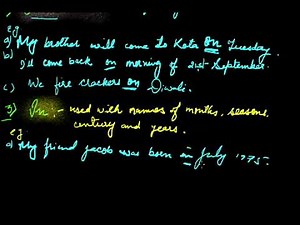 eg
a) My brother will come to Kota on Tuesday.
b) I'll come back on morning of 21st September.
c) We fire crackers on Diwali.
3) In :- used with names of months, seasons,
century and years.
eg
a) My friend Jacob was born in July 1975.